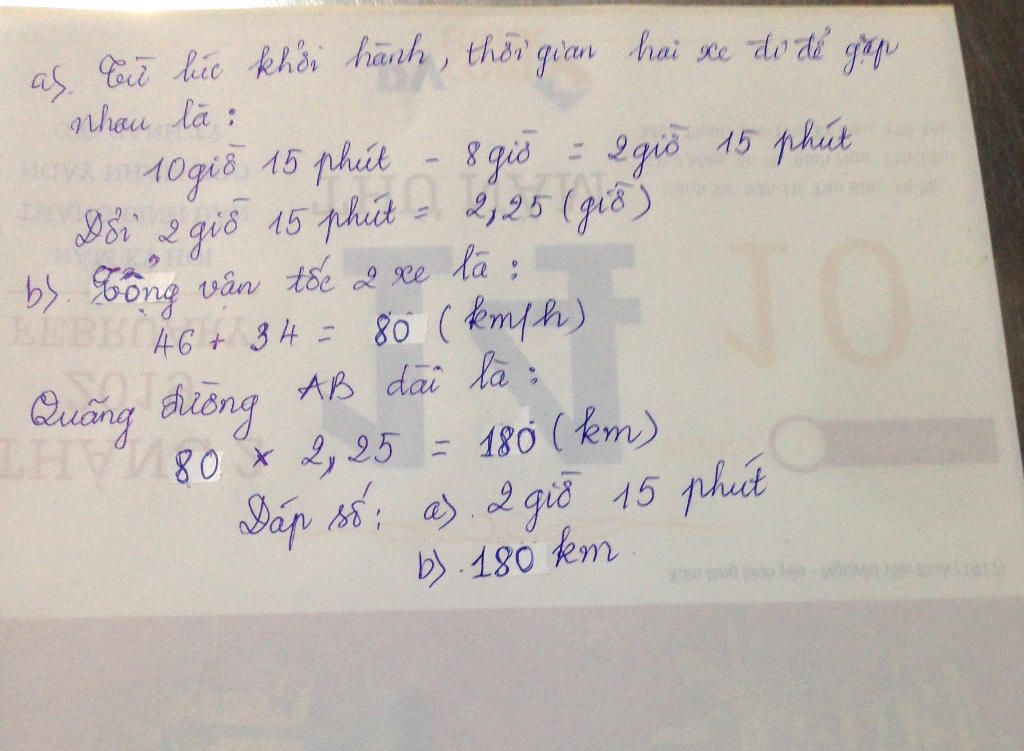 a). Từ lúc khởi hành, thời gian hai xe đi để gặp
nhau là :
10 giờ 15 phút - 8 giờ = 2 giờ 15 phút
Đổi 2 giờ 15 phút = 2,25 (giờ)
b). Tổng vận tốc 2 xe là :
46 + 34 = 80 (km/h)
Quãng đường AB dài là :
80 × 2,25 = 180 (km)
Đáp số : a). 2 giờ 15 phút
b). 180 km